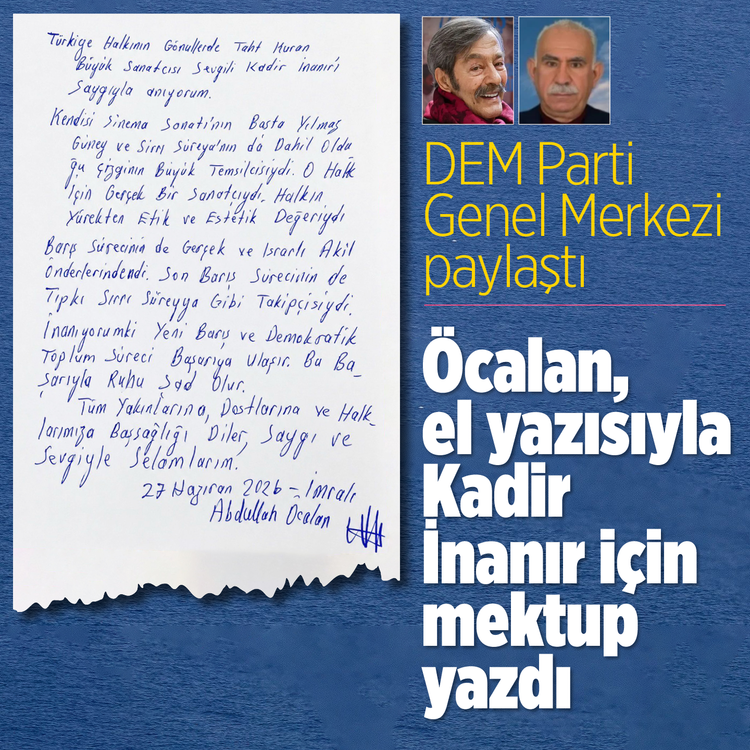 Türkiye Halkının Gönüllerde Taht Kuran
Büyük Sanatçısı Sevgili Kadir İnanır'ı
Saygıyla anıyorum.
Kendisi Sinema Sanatı'nın Başta Yılmaz
Güney ve Sırrı Süreya'nın da Dahil Oldu
ğu Çizginin Büyük Temsilcisiydi. O Halk
İçin Gerçek Bir Sanatçıydı. Halkın
Yürekten Etik ve Estetik Değeriydi
Barış Sürecinin de Gerçek ve Israrlı Akil
Önderlerindendi. Son Barış Sürecinin de
Tıpkı Sırrı Süreyya Gibi Takipçisiydi.
İnanıyorumki Yeni Barış ve Demokratik
Toplum Süreci Başarıya Ulaşır. Bu Ba-
şarıyla Ruhu Şad Olur.
Tüm Yakınlarına, Dostlarına ve Halk-
larımıza Başsağlığı Diler, Saygı ve
Sevgiyle Selamlarım.
27 Haziran 2026 - İmralı
Abdullah Öcalan
DEM Parti
Genel Merkezi
paylaştı
Öcalan,
el yazısıyla
Kadir
İnanır için
mektup
yazdı